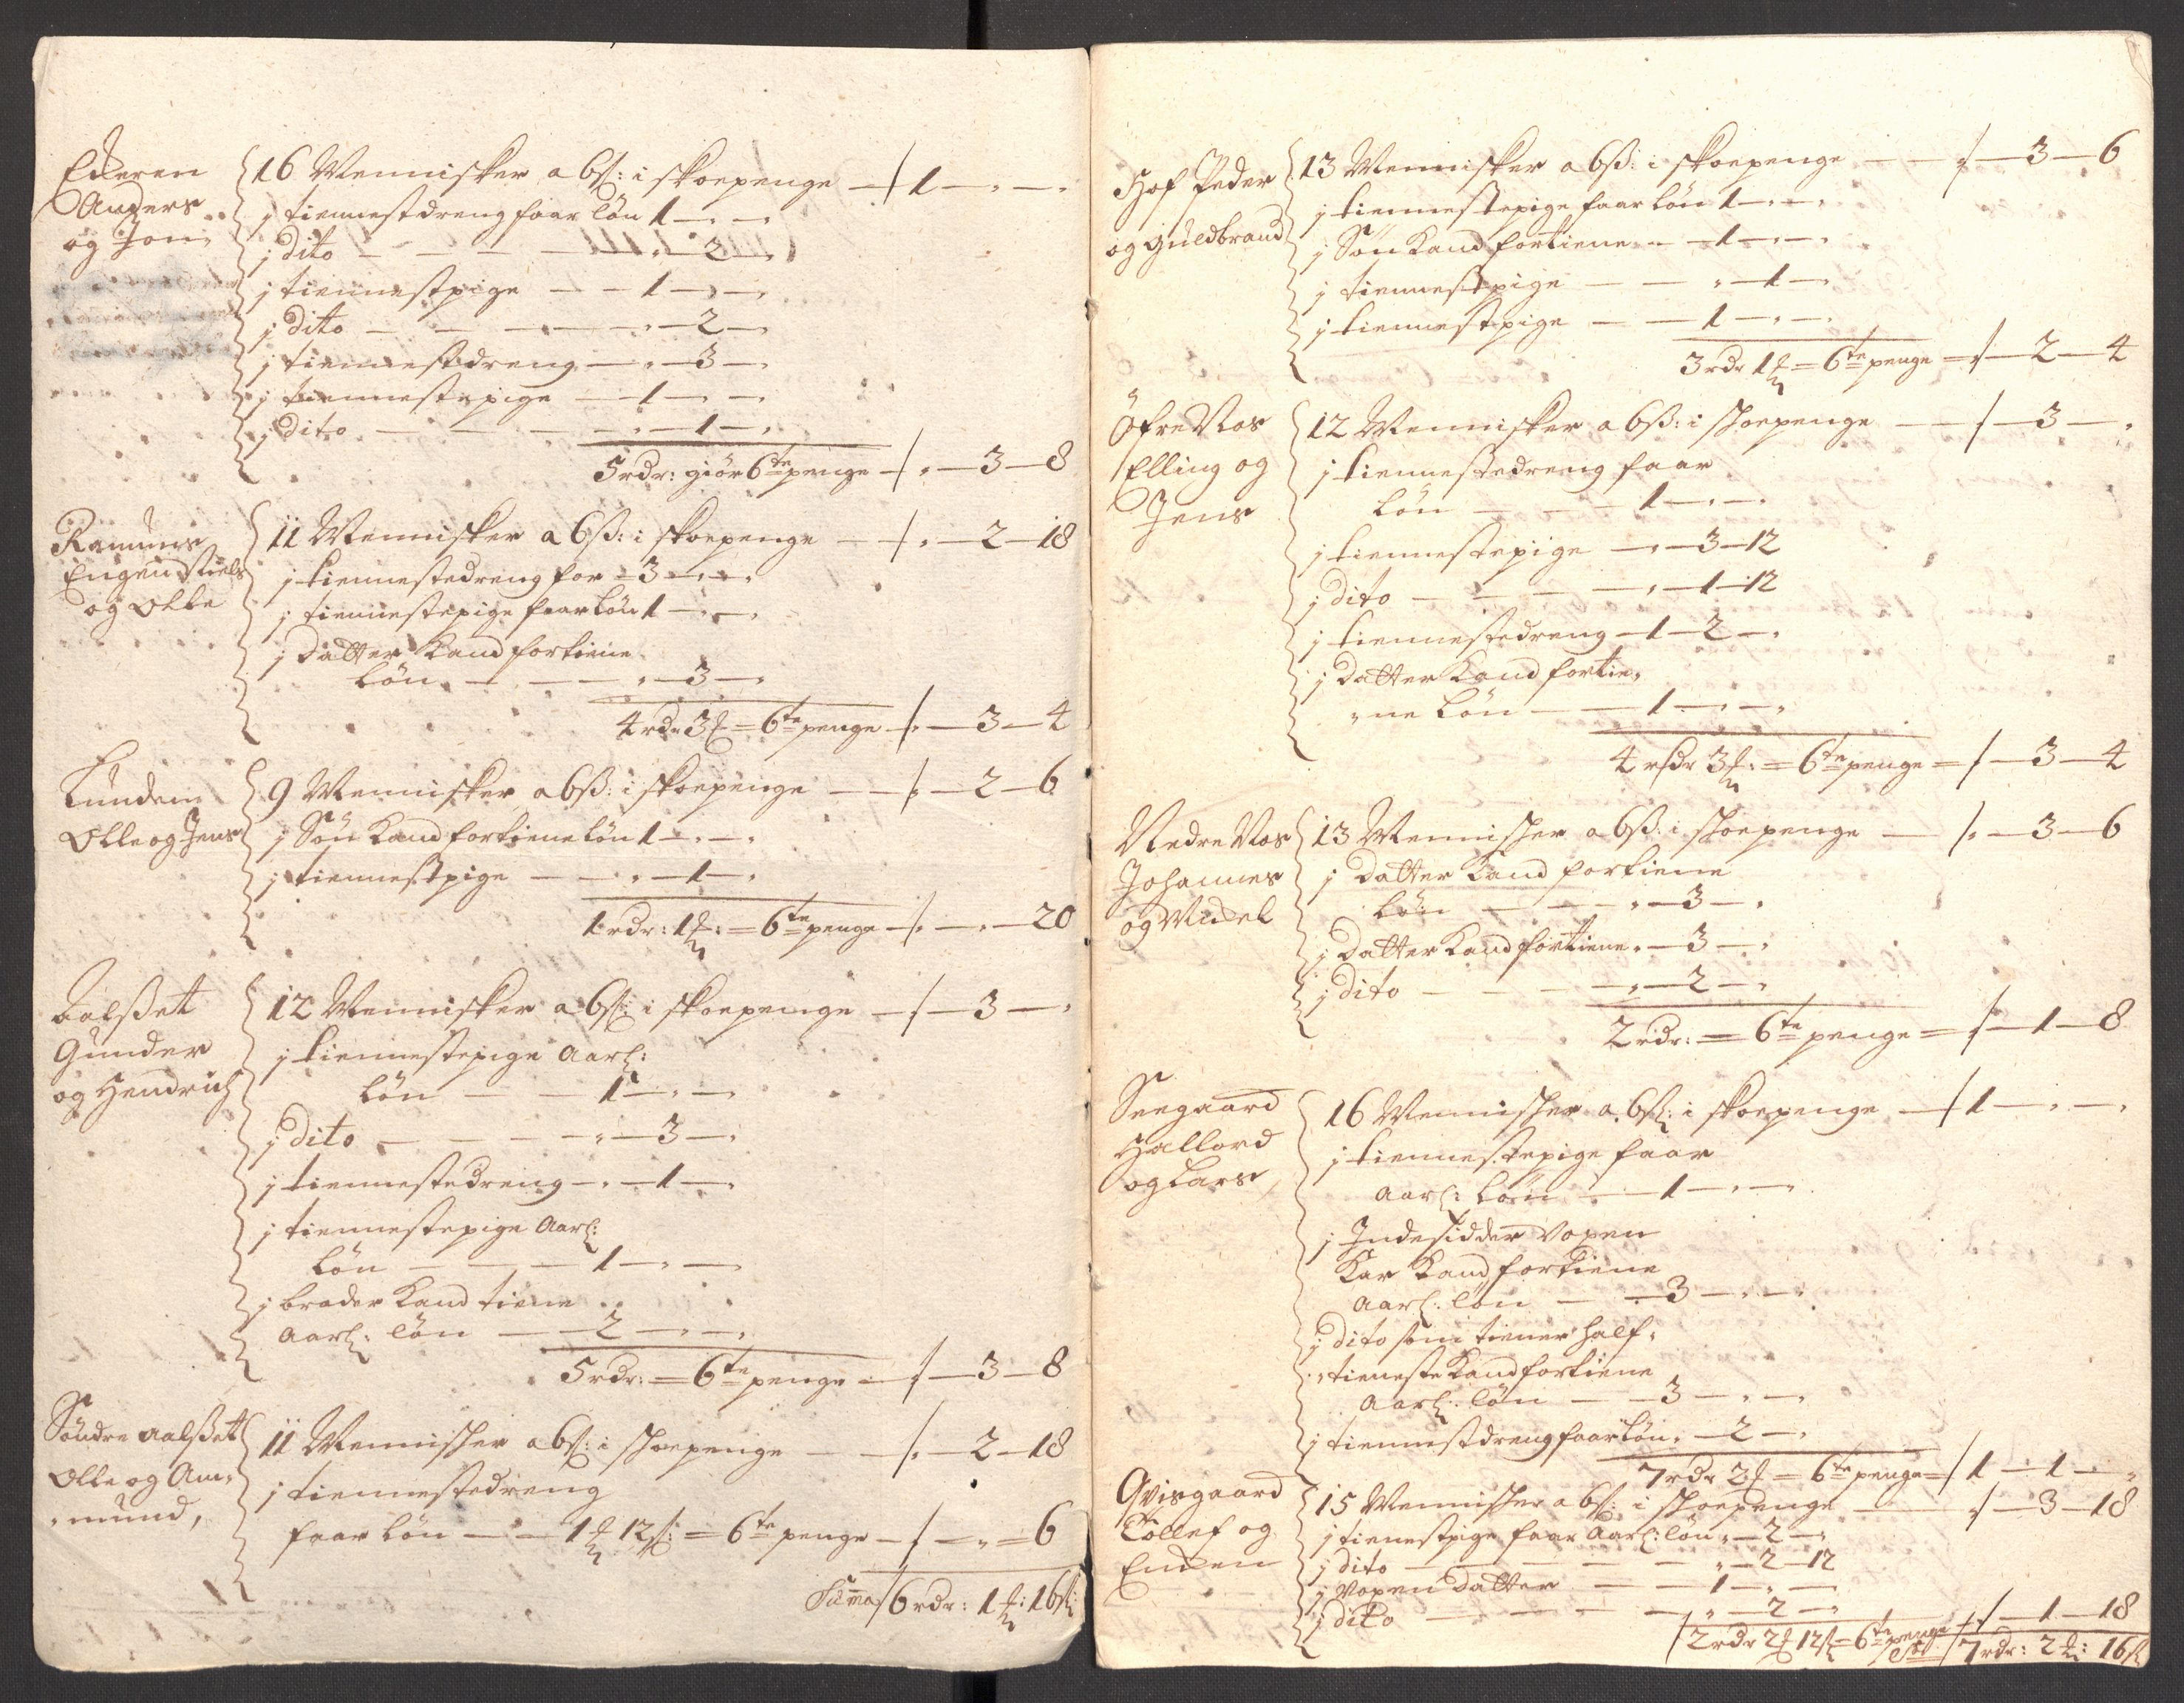 Ederen
Anders
og Jon
16 Mennisker a 6 ß: i skoepenge — 1 — " — "
j tiennestdreng faar løn 1 — " — "
j dito — — — " — 2 — "
j tiennestpige — — 1 — " — "
j dito — — — " — 2 — "
j tiennestdreng — " — 3 — "
j tiennestepige — 1 — " — "
j dito — — — " — 1 — "
5 rdr: giør 6te penge — " — 3 — 8
Ramuns
Engen Niels
og Olle
11 Mennisker a 6 ß: i skoepenge — " — 2 — 18
j tiennestedreng for — 3 — " — "
j tiennestepige faar løn 1 — " — "
j Datter Kand fortiene
løn — — — " — 3 — "
4 rdr 3 = 6te penge — " — 3 — 4
Lunden
Olle og Jens
9 Mennisker a 6 ß: i skoepenge — — 2 — 6
j Søn Kand fortiene løn 1 — " — "
j tiennestpige — — " — 1 — "
1 rdr: 1 : = 6te penge — " — " — 20
Gunder
og Hendrich
12 Mennisker a 6 ß: i skoepenge — 3 — "
j tiennestepige Aarl:
løn — — 1 — " — "
j dito — — — " — 3 — "
j tiennestedreng — " — 1 — "
j tiennestepige Aarl:
løn — — — 1 — " — "
j broder Kand tiene
Aarl: løn — 2 — " — "
5 rdr: = 6te penge — 3 — 8
Søndre Aalßet
Olle og Am„
„mund,
11 Mennisker a 6 ß: i skoepenge — — 2 — 18
j tiennestedreng
faar løn — — 1 12 ß: = 6te penge — " — 6
Suma 6 rdr: 1 : 16 ß
Hof Peder
og Guldbrand
13 Mennisker a 6 ß: i skoepenge — — 3 — 6
j tiennestepige faar løn 1 — " — "
j Søn Kand fortiene — 1 — " — "
j tiennestpige — — " — 1 — "
j tiennestpige — — 1 — " — "
3 rdr 1 = 6te penge = — 2 — 4
Öfre Nos
Elling og
Jens
12 Mennisker a 6 ß: i skoepenge — — 3 — "
j tiennestedreng faar
løn — — — 1 — " — "
j tiennestepige — " — 3 — 12
j dito — — — " — 1 — 12
j tiennestedreng — 1 — 2 — "
j Datter Kand fortie„
„ne løn — — 1 — " — "
4 rdr 3 : = 6te penge = — 3 — 4
Nedre Nos
Johannes
og Midel
13 Mennisker a 6 ß: i skoepenge — — 3 — 6
j Datter Kand fortiene
løn — — — " — 3 — "
j Datter Kand fortiene " — 3 — "
j dito — — — " — 2 — "
2 rdr: = 6te penge = — 1 — 8
Seegaard
Hallord
og Lars
16 Mennisker a 6 ß: i skoepenge — 1 — " — "
j tiennestepige faar
Aarl: løn — 1 — " — "
j Indesidder Voxen
Kar Kand fortiene
Aarl: løn — 3 — " — "
j dito som tiener half„
„tieneste Kand fortiene
Aarl: løn — 3 — " — "
j tiennestdreng faar løn " — 2 — "
7 rdr 2 = 6te penge = 1 — 1 — "
Qvisgaard
Tollef og
15 Mennisker a 6 ß: i skoepenge — — 3 — 18
j tienestpige faar Aarl: løn " — 2 — "
j dito — — — — " — 2 — 12
j Voxen Datter — — 1 — " — "
j dito — — — — " — 2 — "
2 rdr 2 12 ß = 6te penge — 1 — 18
7 rdr: 2 : 16 ß